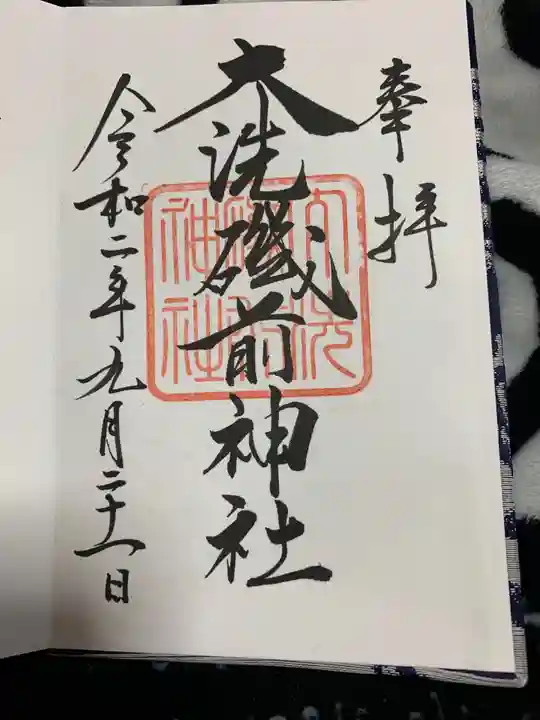 奉拝
大洗磯前神社
令和二年九月二十一日
大洗
磯前
神社